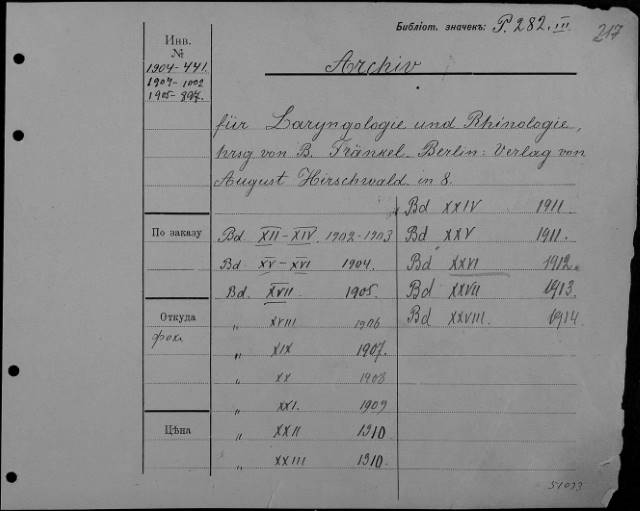 Библіот. значекъ: P. 282. III
217
Инв.
№
1904-441.
1907-1002
1905-897.
Archiv
für Laryngologie und Rhinologie,
hrsg von B. Fränkel. Berlin: Verlag von
August Hirschwald in 8.
По заказу
Откуда
Цѣна
Bd. XII-XIV. 1902-1903
Bd XV-XVI 1904.
Bd. XVII 1905.
" XVIII 1906
" XIX 1907.
" XX 1908
" XXI. 1909
" XXII 1910.
" XXIII 1910.
Bd XXIV 1911.
Bd XXV 1911.
Bd XXVI 1912.
Bd XXVII 1913.
Bd XXVIII. 1914.
51033